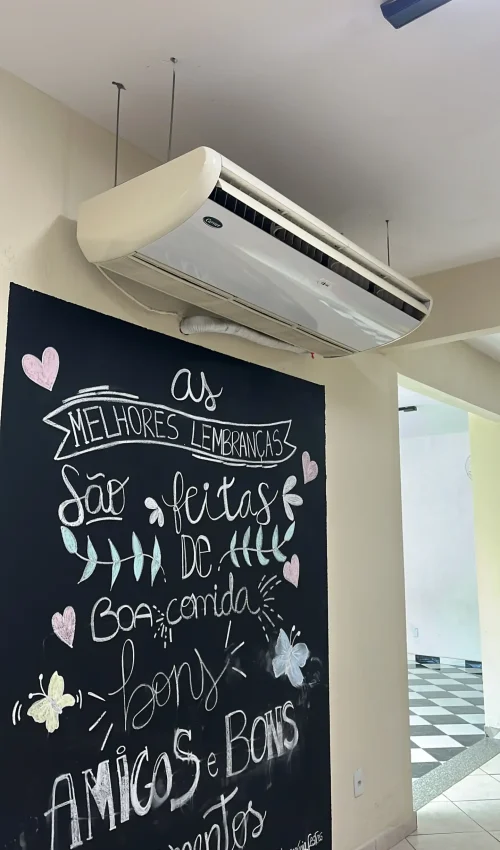 Carrier
as
MELHORES LEMBRANÇAS
São feitas
DE
BOA comida
bons
AMIGOS e BONS
mentos